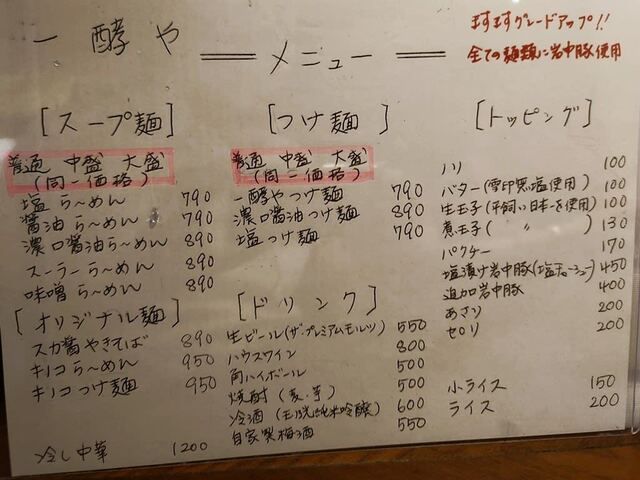 一酵や
メニュー
ますますグレードアップ!!
全ての麺類に岩中豚使用
[スープ麺]
普通 中盛 大盛
(同一価格)
塩らーめん 790
醤油らーめん 790
濃口醤油らーめん 890
スーラーらーめん 890
味噌らーめん 890
[オリジナル麺]
スカ醤やきそば 890
キノコらーめん 950
キノコつけ麺 950
冷し中華 1200
[つけ麺]
普通 中盛 大盛
(同一価格)
一酵やつけ麺 790
濃口醤油つけ麺 890
塩つけ麺 790
[ドリンク]
生ビール(ザ・プレミアムモルツ) 550
ハウスワイン 800
角ハイボール 500
焼酎(麦・芋) 500
冷酒(純米吟醸) 600
自家製梅酒 550
[トッピング]
ノリ 100
バター(雪印無塩使用) 100
生玉子(平飼い日本一を使用) 100
煮玉子( 〃 ) 130
パクチー 170
塩漬け岩中豚(塩チャーシュー) 450
追加岩中豚 400
あさり 200
セロリ 200
小ライス 150
ライス 200